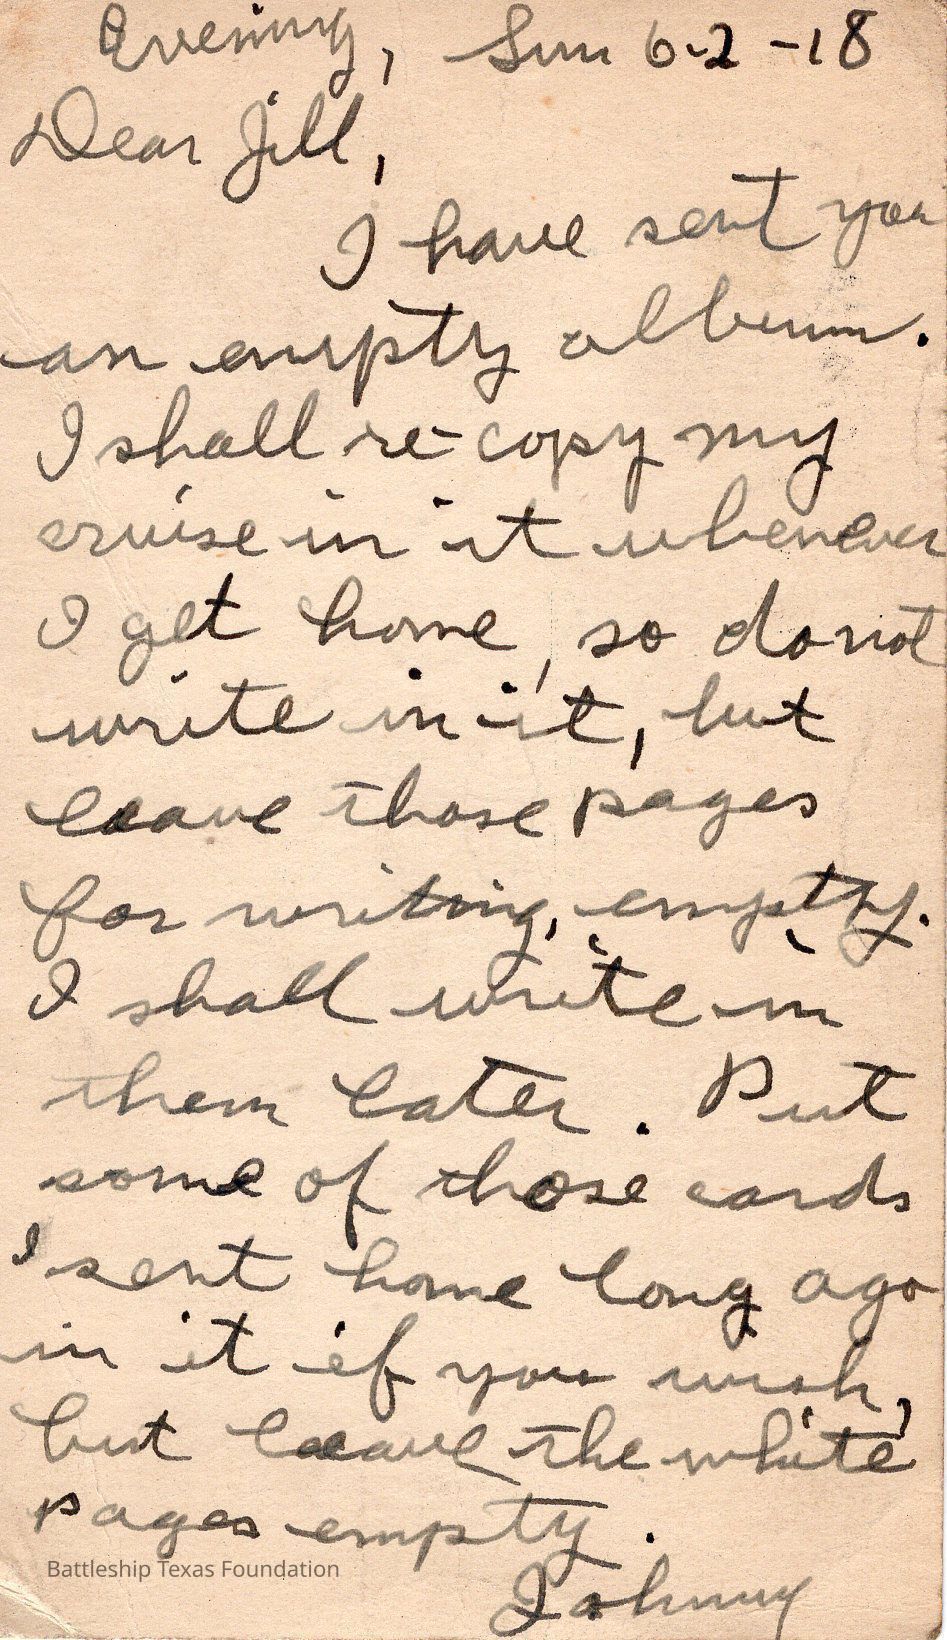 Evening, Sun 6-2-18
Dear Jill,
I have sent you
an empty album.
I shall re-copy my
cruise in it whenever
I get home, so do not
write in it, but
leave those pages
for writing, empty.
I shall write in
them later. Put
some of those cards
I sent home long ago
in it if you wish,
but leave the white
pages empty.
Battleship Texas Foundation
Johnny